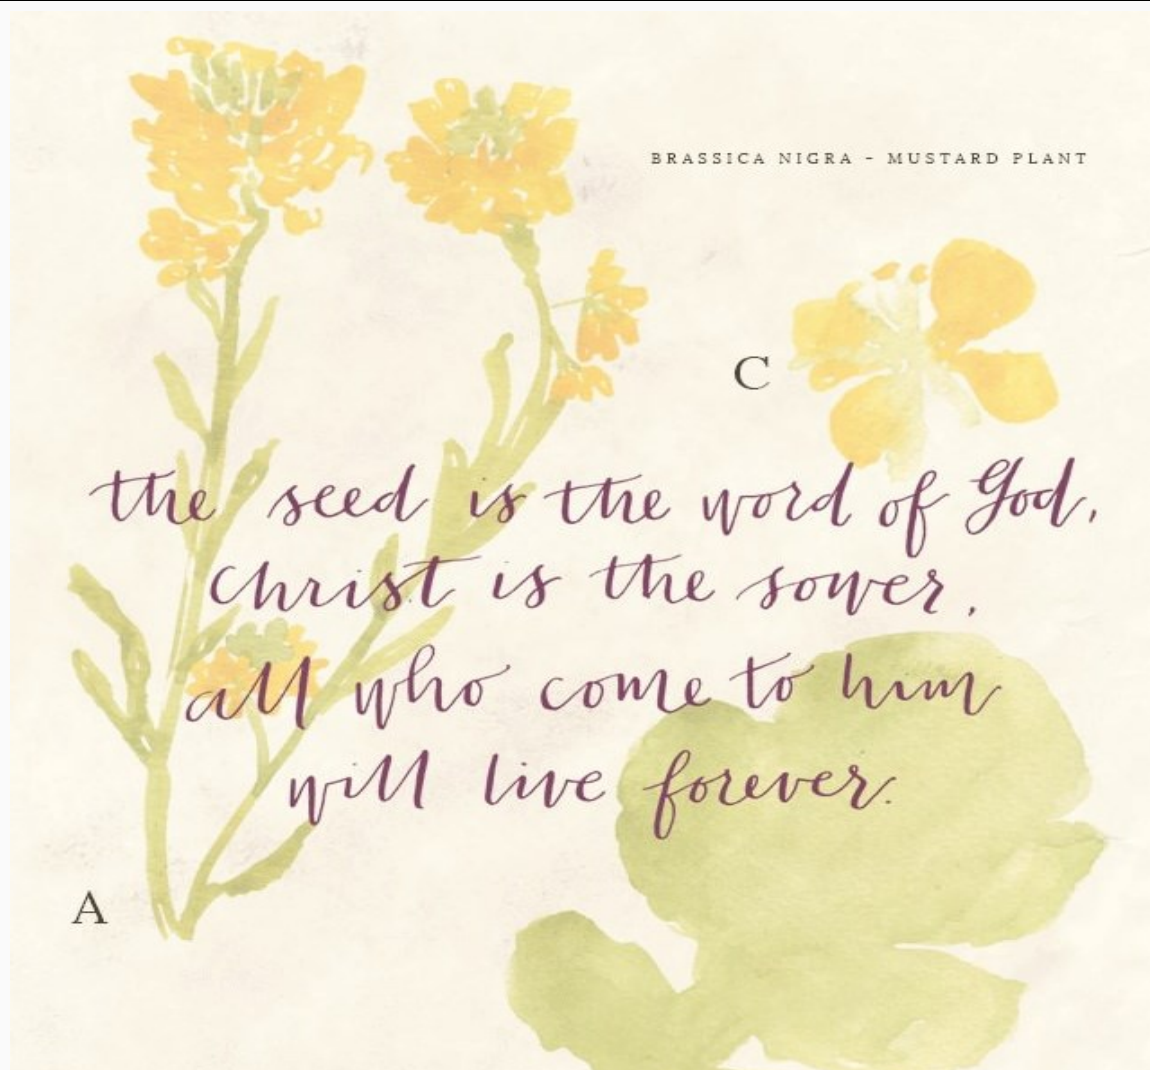 BRASSICA NIGRA - MUSTARD PLANT
C
the seed is the word of God,
Christ is the sower,
all who come to him
will live forever.
A